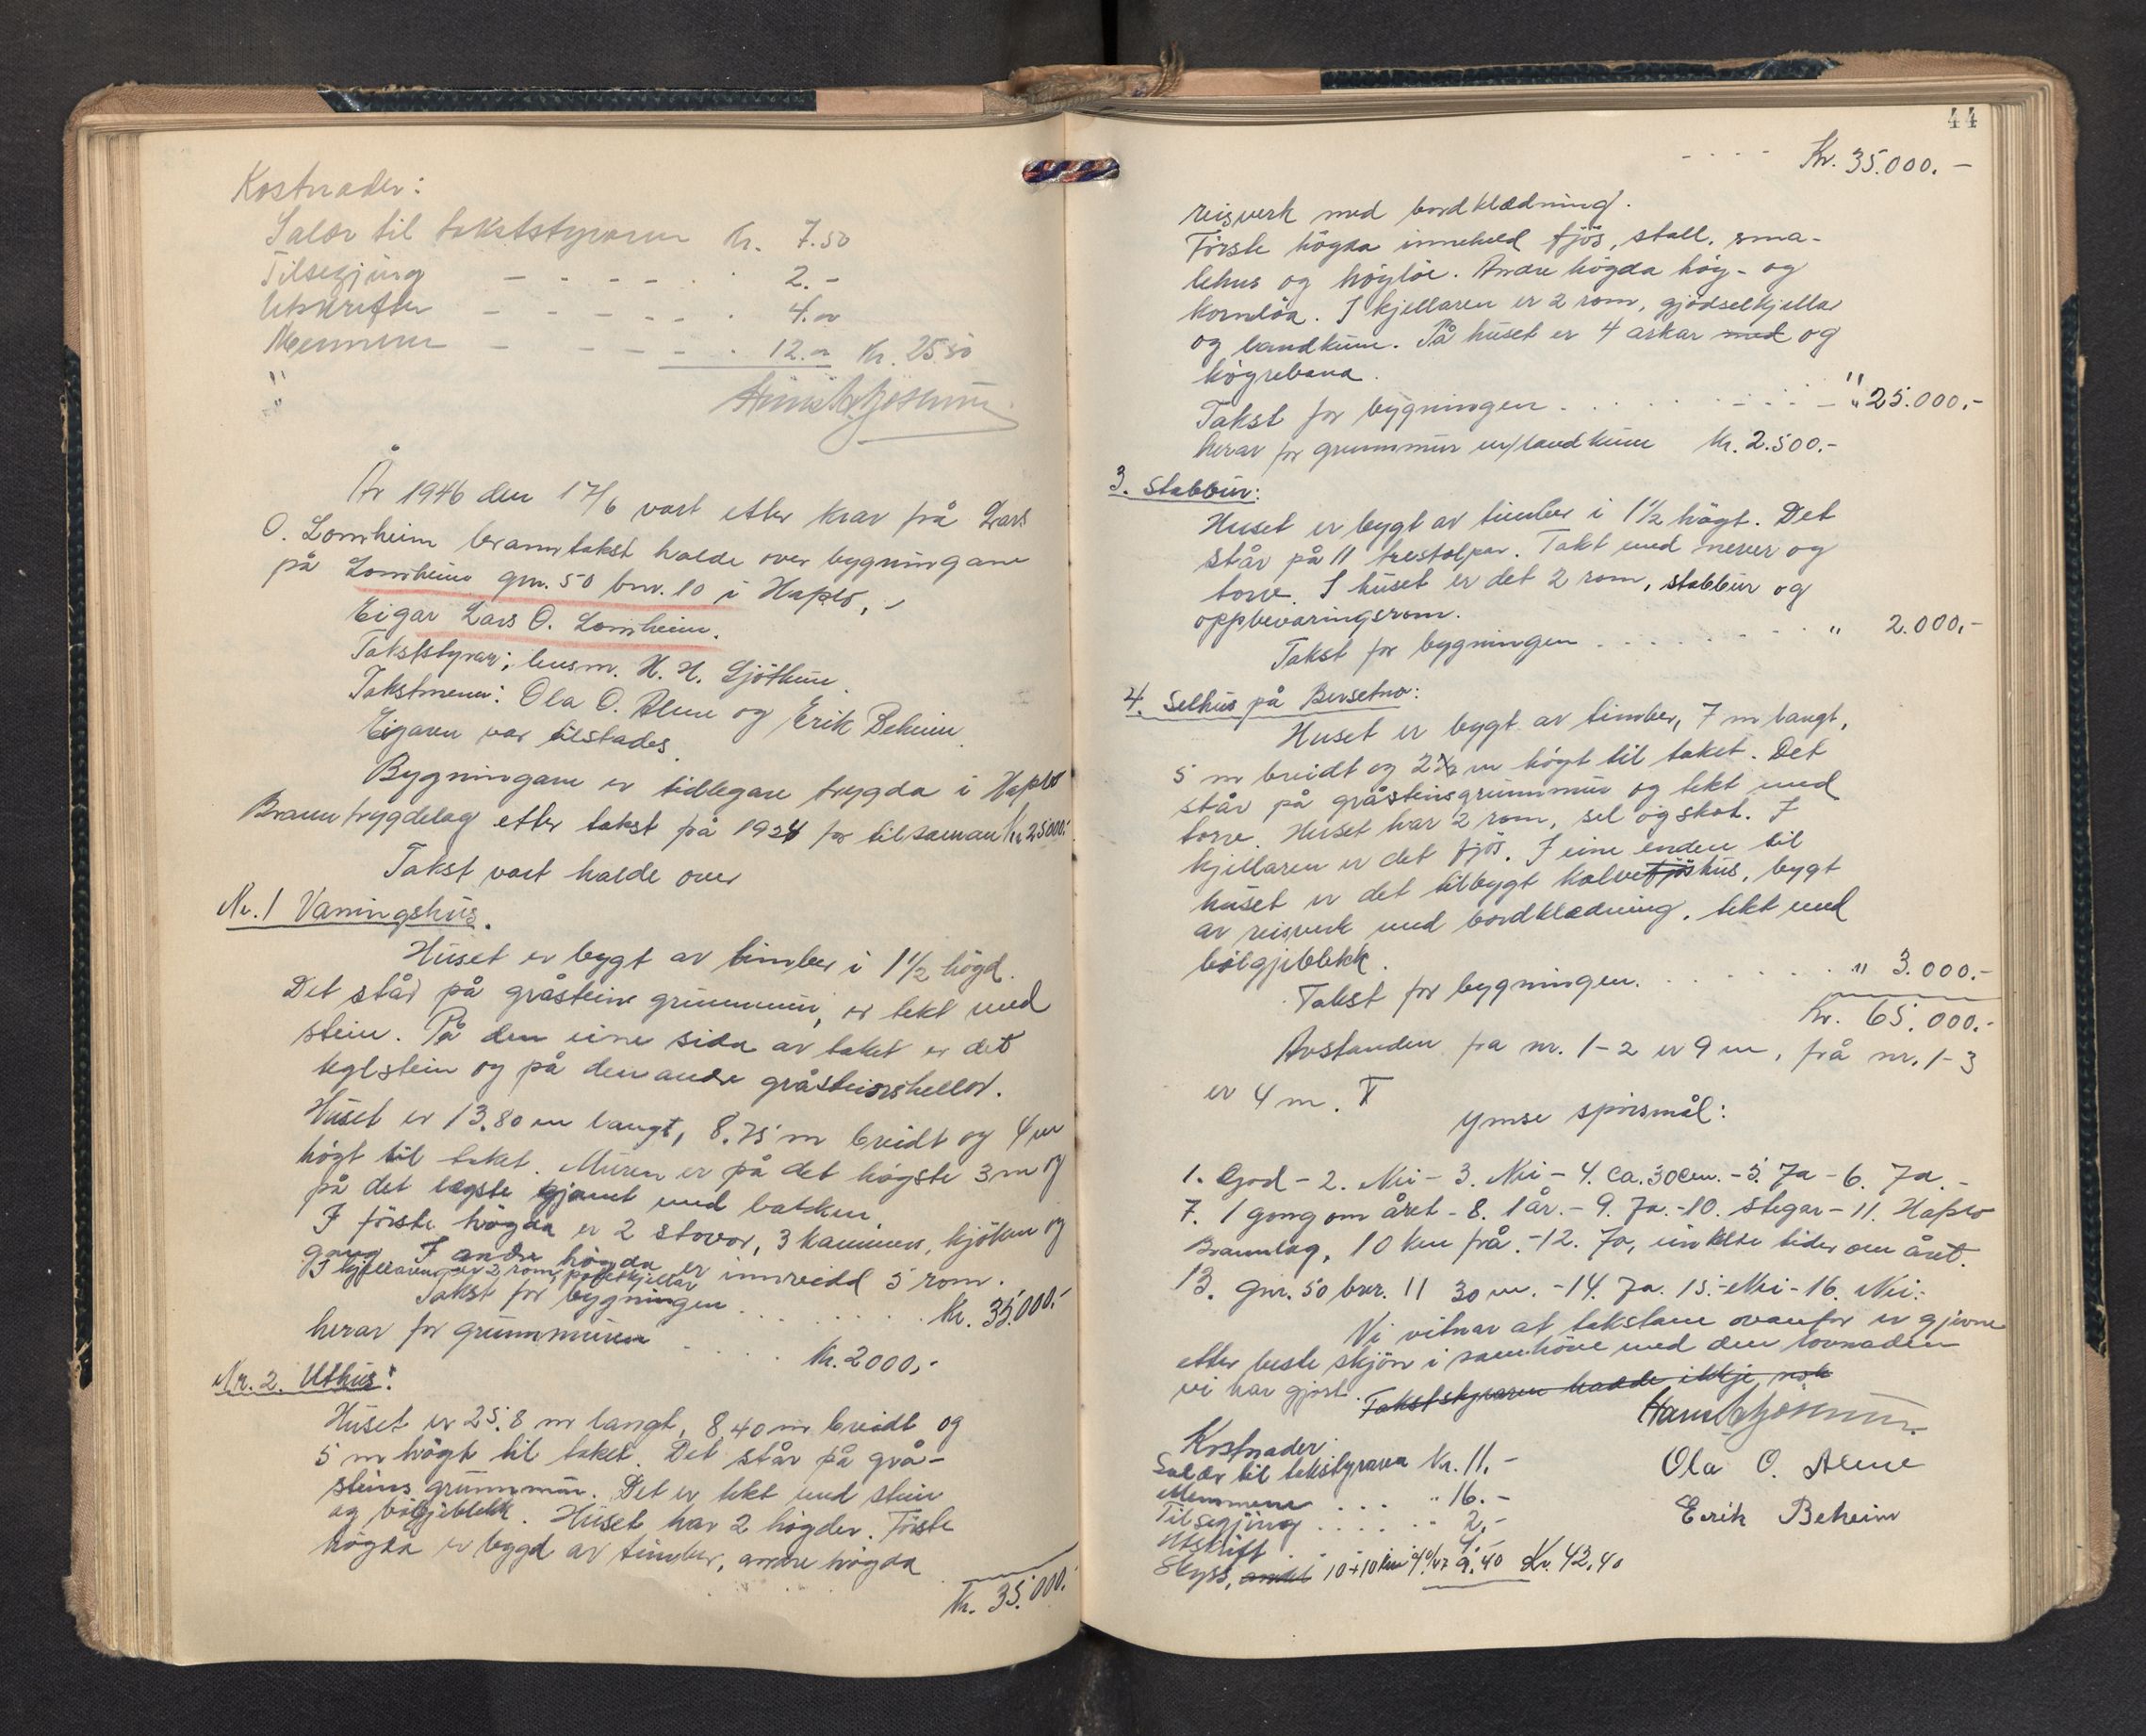 Kostnader:
Salær til takststyraren Kr. 7.50
Tilsegjing - - - - - 2.-
Utskrifter - - - - - 4.00
Mennene - - - - - 12.00 Kr. 25.50
År 1946 den 17/6 vart etter krav frå Lars
O. Lomheim branntakst halde over bygningane
på Lomheim gnr. 50 bnr. 10 i Hafslo,
Eigar Lars O. Lomheim.
Takststyrar: lensm. H. H. Sjøthun
Takstmenn: Ola O. Alme og Erik Beheim
Eigaren var tilstades.
Bygningane er tidlegare trygda i Hafslo
Branntrygdelag etter takst på 1924 for tilsaman Kr. 25000.-
Takst vart halde over
Nr. 1 Vaningshus.
Huset er bygt av timber i 1 1/2 høgd.
Det står på gråsteins grunnmur, er tekt med
stein. På den eine sida av taket er det
teglstein og på den andre gråsteinshellor.
Huset er 13,80 m langt, 8.75 m breidt og 4 m
høgt til taket. Muren er på det høgste 3 m og
på det lægste gjamt med bakken.
I første høgda er 2 stovor, 3 kammers, kjøken og
gang. I andre høgda er innreidd 5 rom.
I kjellaren er 2 rom, potetkjellar
Takst for bygningen . . . . . . Kr. 35.000.-
herav for grunnmuren . . . . Kr. 2000,-
Nr. 2. Uthus:
Huset er 25.8 m langt, 8,40 m breidt og
5 m høgt til taket. Det står på grå-
steins grunnmur. Det er tekt med stein
og bølgjeblekk. Huset har 2 høgder. Første
høgda er bygd av timber, andre høgda
Kr. 35.000.-
44
- - - - Kr. 35.000.-
reisverk med bordklædning.
Første høgda inneheld fjøs, stall, sma-
lehus og høyløe. Andre høgda høy- og
kornløa. I kjellaren er 2 rom, gjødselkjellar
og landkum. På huset er 4 arkar med og
høgrebana.
Takst for bygningen . . . . . . " 25.000,-
herav for grunnmur m/landkum Kr. 2.500.-
3. Stabbur:
Huset er bygt av timber i 1 1/2 høgt. Det
står på 11 trestolpar. Takt med never og
torv. I huset er det 2 rom, stabbur og
oppbevaringsrom.
Takst for bygningen . . . . . . . . " 2.000,-
4. Selhus på Bersetno:
Huset er bygt av timber, 7 m langt,
5 m breidt og 2 1/2 m høgt til taket. Det
står på gråsteinsgrunnmur og tekt med
torv. Huset har 2 rom, sel og skot. I
kjellaren er det fjøs. I eine enden til
huset er det tilbygt kalvefjøshus, bygt
av reisverk med bordklædning, tekt med
bølgjeblekk.
Takst for bygningen. . . . . . . " 3.000.-
Kr. 65.000.-
Avstanden fra nr. 1-2 er 9 m, frå nr. 1-3
er 4 m.
Ymse spørsmål:
1. God - 2. Nei - 3. Nei - 4. ca. 30 cm. - 5. Ja - 6. Ja. -
7. 1 gong om året - 8. 1 år. - 9. Ja. - 10. stegar - 11. Hafslo
Brannlag, 10 km frå. - 12. Ja, einkelte tider om året.
13. gnr. 50 bnr. 11 30 m. - 14. Ja. 15. - Nei - 16. Nei. -
Vi vitnar at takstane ovanfor er gjevne
etter beste skjøn i samhøve med den lovnaden
vi har gjort. Takststyraren hadde ikkje nok
Ola O. Alme
Erik Beheim
Kostnader:
Salær til takstyrara Kr. 11,-
Mennene . . . " 16.-
Tilsegjing . . . . " 2,-
Utskrift . . . 4.-
Skyss, 10+10 km 9,40 Kr. 42,40